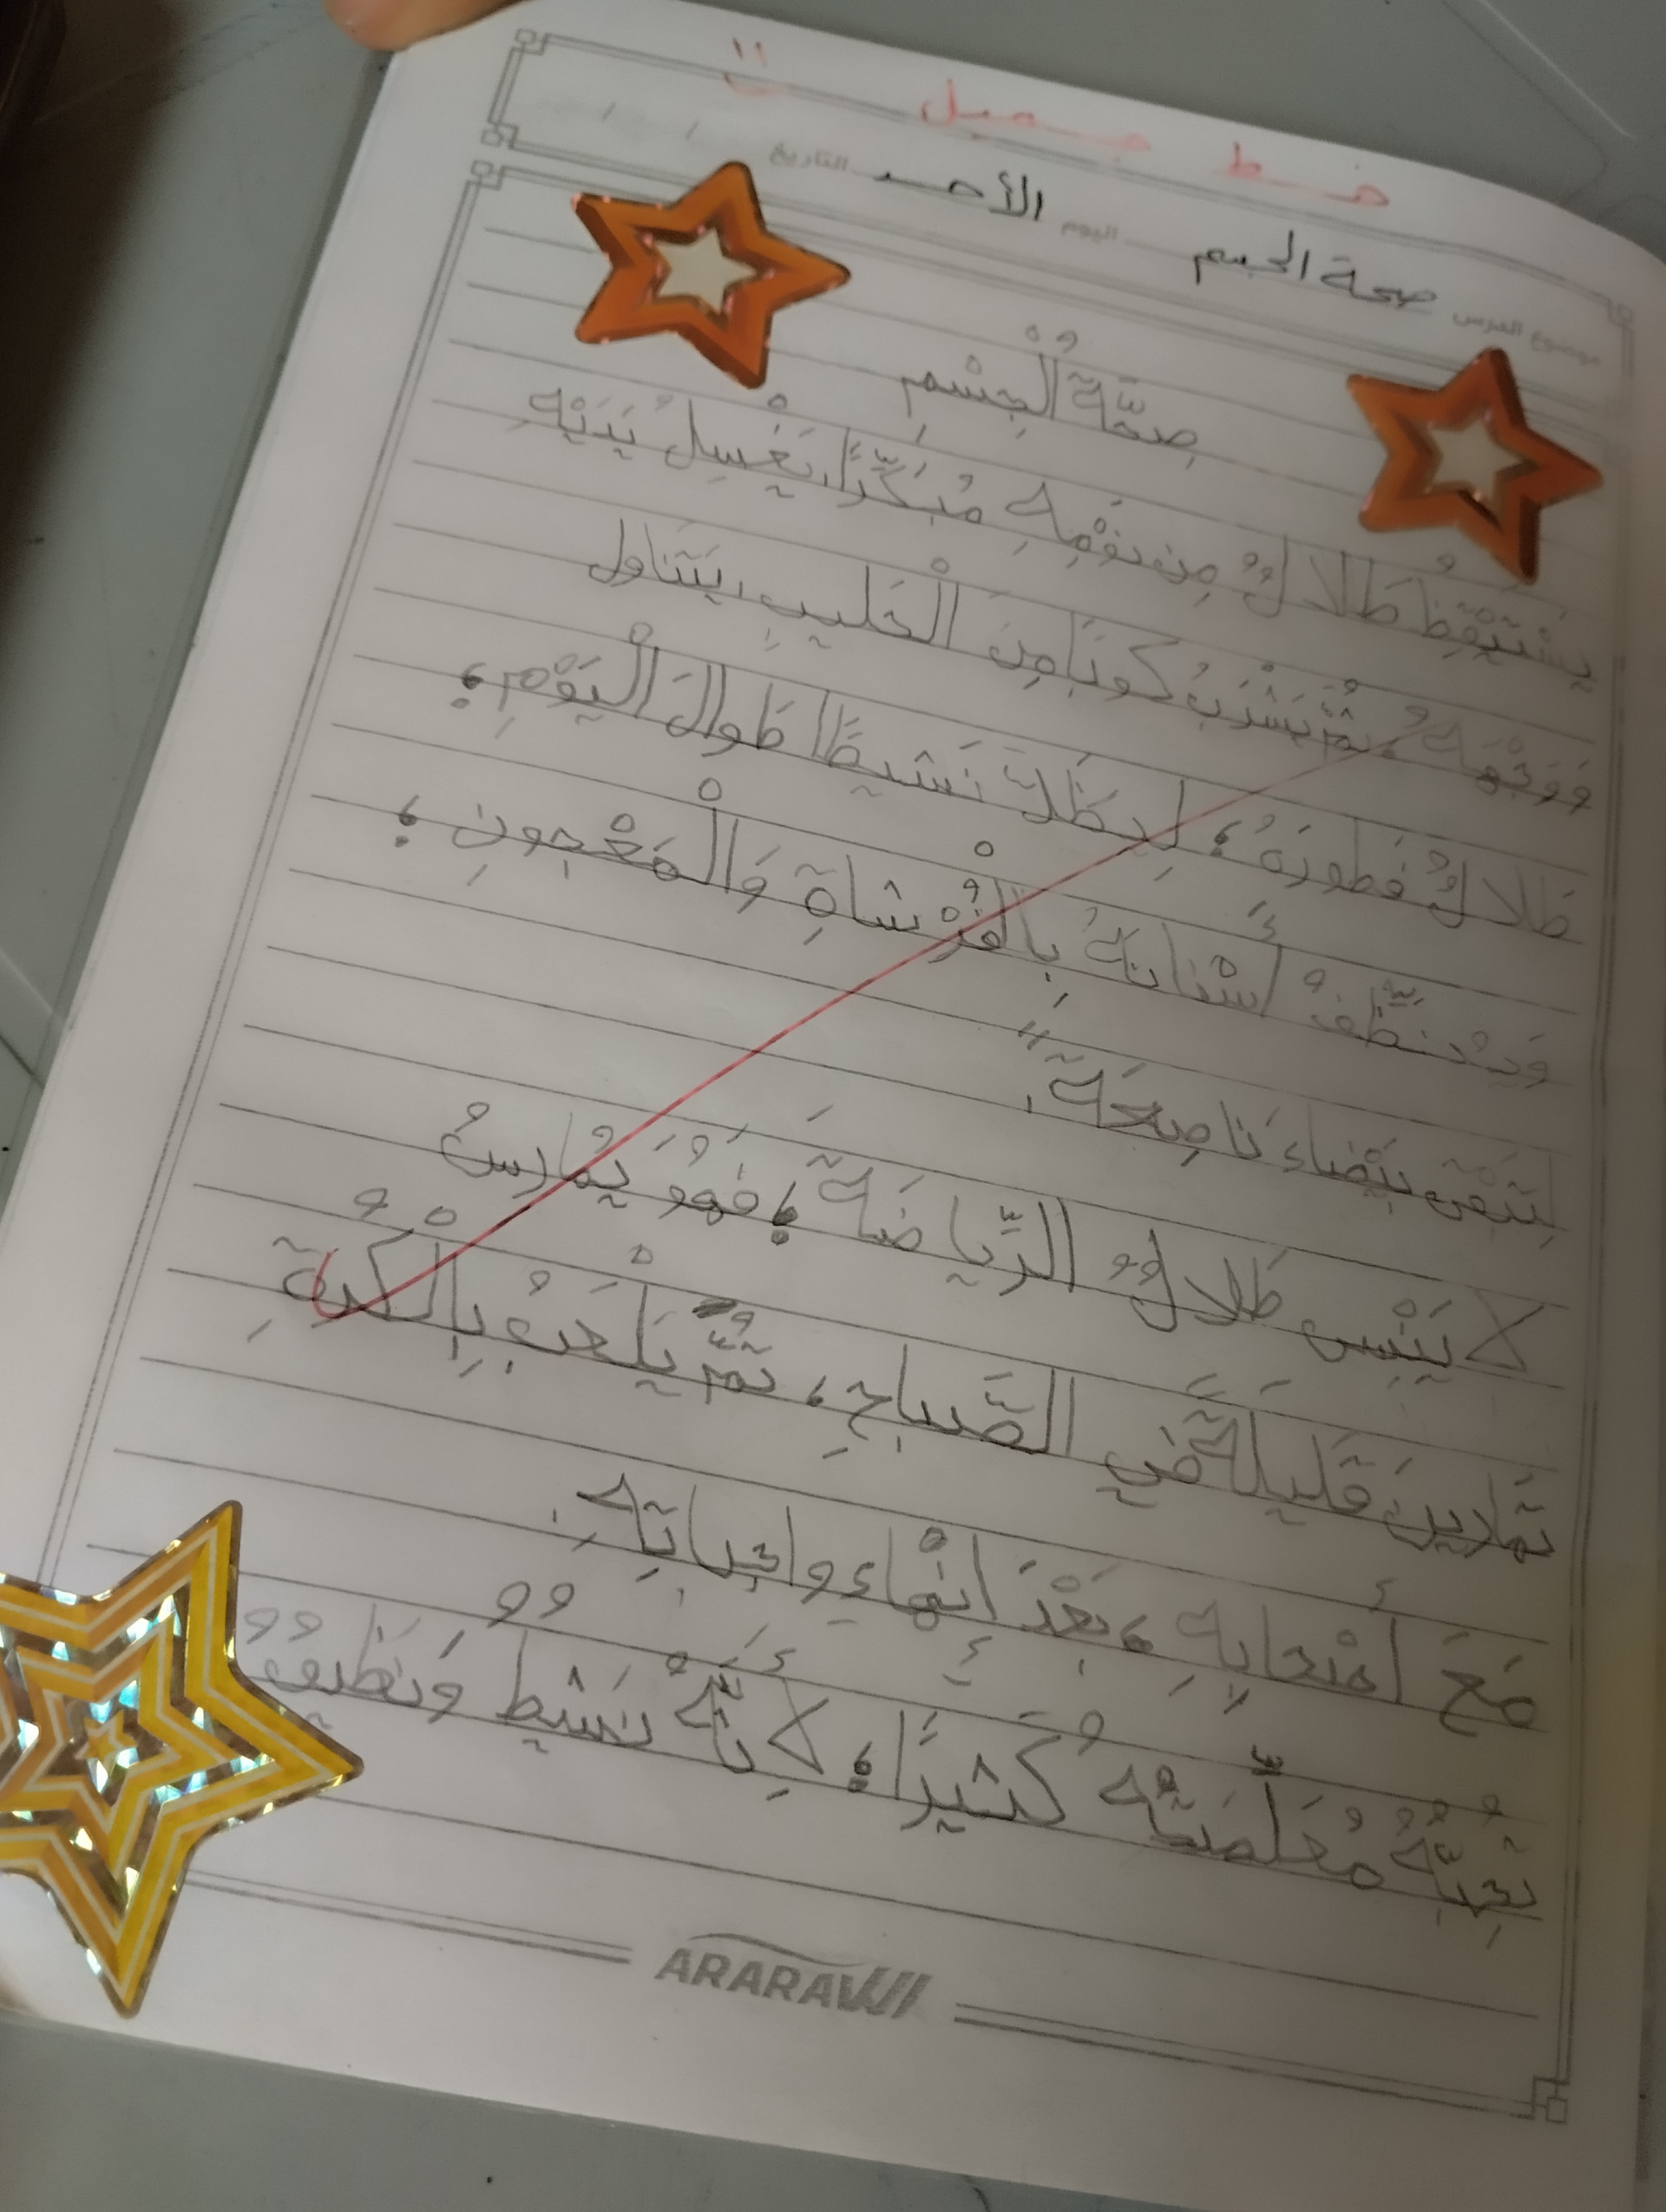 خط جميل
موضوع الدرس صحة الجسم اليوم الأحد التاريخ / /
صِحَّةُ الْجِسْمِ
يَسْتَيْقِظُ طَلالٌ مِن نَوْمِهِ مُبَكِّرًا، يَغْسِلُ يَدَيْهِ
وَوَجْهَهُ، ثُمَّ يَشْرَبُ كوبًا مِنَ الْحَليبِ، يَتَناول
طَلالٌ فَطورَهُ؛ لِيَظَلَّ نَشيطًا طَوالَ الْيَوْمِ؛
وَيُنَظِّفُ أَسْنانَهُ بِالْفُرْشاةِ وَالْمَعْجونِ؛
لِتَبْقى بَيْضاءَ ناصِعَةً.
لا يَنْسى طَلالٌ الرِّياضَةَ؛ فَهُوَ يُمارِسُ
تَمارينَ قَليلَةً في الصَّباحِ، ثُمَّ يَلْعَبُ بِالْكُرَةِ
مَعَ أَصْحابِهِ، بَعْدَ إِنْهاءِ واجِباتِهِ.
تُحِبُّهُ مُعَلِّمَتُهُ كَثيرًا؛ لِأَنَّهُ نَشيطٌ وَنَظيفٌ
ARARAWI